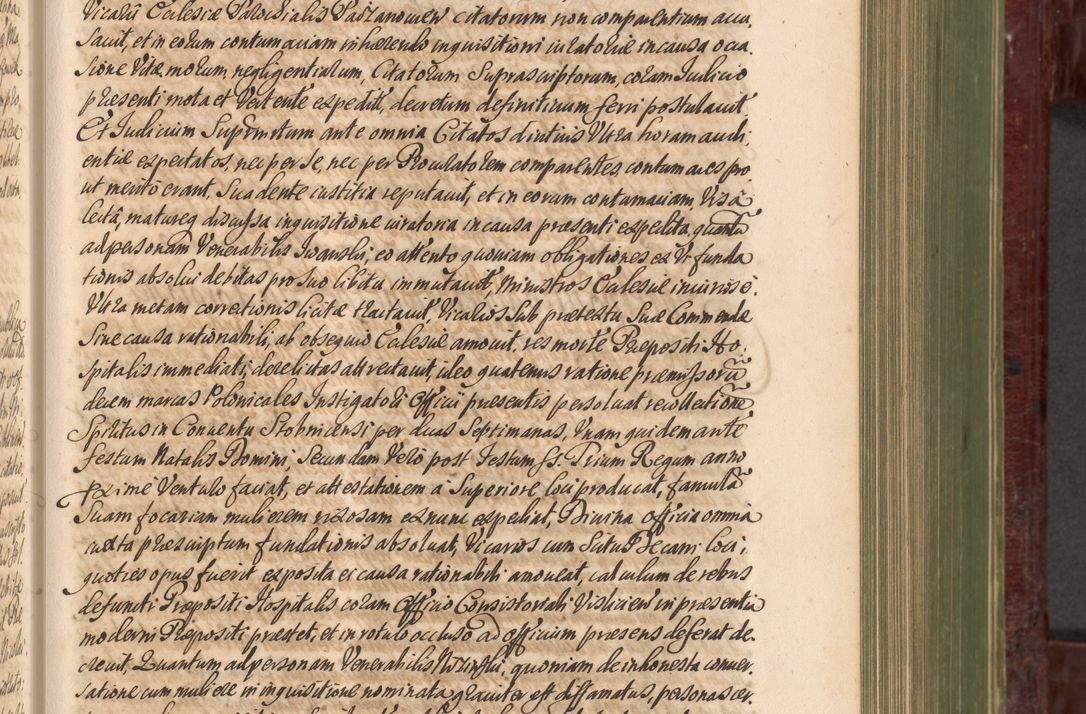 Vicarii Ecclesiæ Parochialis Pacanovien citatorum non comparentium accu
savit, et in eorum contumaciam inhærendo inquisitioni iuratoriæ in causa occa
sione Vitæ, morum, negligentiarum, Citatorum Suprascriptorum, coram Iudicio
præsenti mota et Vertente expedit, decretum definitivum ferri postulavit
Et Iudicium Supremum ante omnia Citatos diutius Ultra horam audi,
entiæ expectatos, nec per se, nec per Procuratorem comparentes contumaces pro
ut merito erant, Suadente iustitia reputavit, et in eorum contumaciam Visa
lectâ, matureq discussa inquisitione iuratoria in causa præsenti expedita, quantũ
ad personam Venerabilis Iwanski, eo attento quoniam obligationes ex Vi funda
tionis absolvi debitas pro suo libitu immutavit, Ministros Ecclesiæ iniuriose
Ultra metam correctionis licitæ tractavit, Vicarios Sub prætextu Suæ Commendæ
Sine causa rationabili, ab obsequio Ecclesiæ amovit, res morte Præpositi Ho,
spitalis immediati, derelictas attrectavit, ideo quatenus ratione præmissorũ
decem marcas Polonicales Instigatori Officii præsentis persolvat recollectione
Spiritus in Conventu Stobnicensi per duas Septimanas, Unam quidem ante
festum Natalis Domini, Secundam Vero post Festum SS. Trium Regum anno
proxime Venturo faciat, et attestationem a Superiore loci producat, famulã
Suam focariam mulierem rixosam ex nunc expediat, Divina officia omnia
iuxta præscriptum fundationis absolvat, Vicarios cum Scitu RDecani loci,
quoties opus fuerit exposita ei causa rationabili amoveat, calculum de rebus
defuncti Præpositi Hospitalis coram Officio Consistoriali Vislicien in præsentia
moderni Præpositi præstet, et in rotulo occluso ad officium præsens deferat de.
crevit, Quantum ad personam Venerabilis quoniam de inhonesta conver
satione cum muliere in inquisitione nominata graviter est diffamatus, personas ex